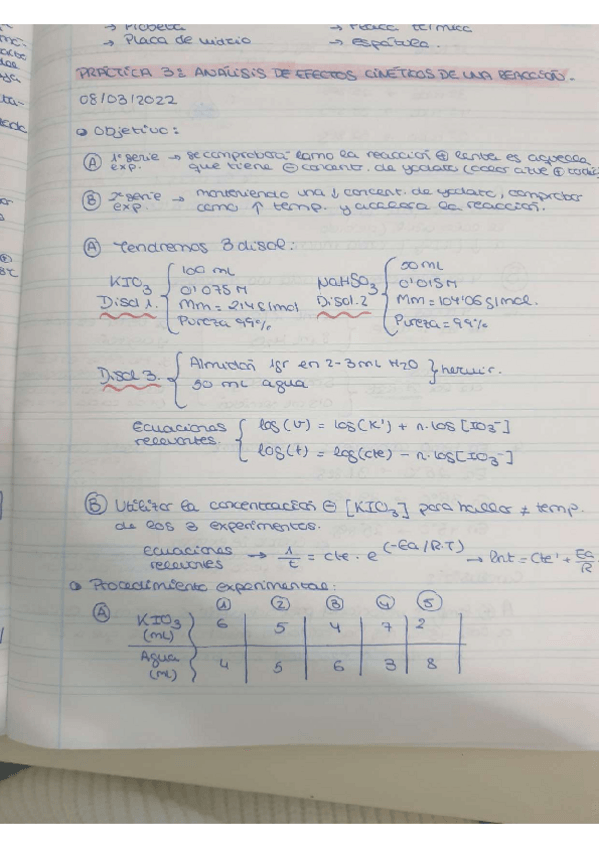 → Probeta → Placa térmica
→ Placa de vidrio → espátula.
PRÁCTICA 3: ANÁLISIS DE EFECTOS CINÉTICOS DE UNA REACCIÓN.
08/03/2022
Objetivo:
Ⓐ 1ª serie exp. → se comprobará como la reacción ⊕ lenta es aquella
que tiene ⊖ concent. de yodato (color azul ⊕
Ⓑ 2ª serie exp. → manteniendo una ↓ concent. de yodato, comprobar
como ↑ temp. y acelera la reacción.
Ⓐ Tendremos 3 disol:
KIO3 Disol 1. { 100 mL
0'075M
Mm = 214 g/mol
Pureza 99%
NaHSO3 Disol. 2 { 50 mL
0'015M
Mm = 104'06 g/mol.
Pureza = 99%
Disol 3. { Almidón 1gr en 2-3 mL H2O
50 mL agua } hervir.
Ecuaciones relevantes. { log(v) = log(K') + n·log[IO3-]
log(t) = log(cte) - n·log[IO3-]
Ⓑ Utilizar la concentración ⊖ [KIO3] para hallar ≠ temp.
de los 3 experimentos.
ecuaciones relevantes → 1/t = cte · e^(-Ea/R.T) → lnt = Cte' + Ea/R
Procedimiento experimental:
Ⓐ ① ② ③ ④ ⑤
KIO3 (mL) 6 5 4 7 2
Agua (mL) 4 5 6 3 8